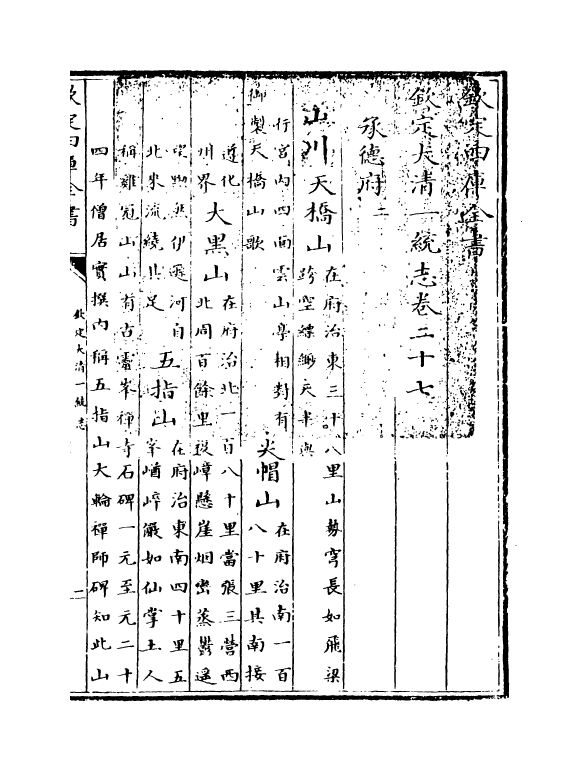 欽定四庫全書
欽定大清一統志卷二十七
承德府二
山川天橋山
在府治東三十八里山勢穹長如飛梁
跨空縹緲天半與
行宮內四面雲山亭相對有
御製天橋山歌
尖帽山
在府治南一百
八十里其南接
遵化
州界
大黑山
在府治北一百八十里當張三營西
北周百餘里複嶂懸崖烟巒蒸鬱遥
望伊遜河自
北來流繞其足
五指山
在府治東南四十里五
峯崷崪儼如仙掌土人
稱雞冠山山有古靈峯禪寺石碑一元至元二十
四年僧居實撰內稱五指山大輪禪師碑知此山
欽定四庫全書
欽定大清一統志
一